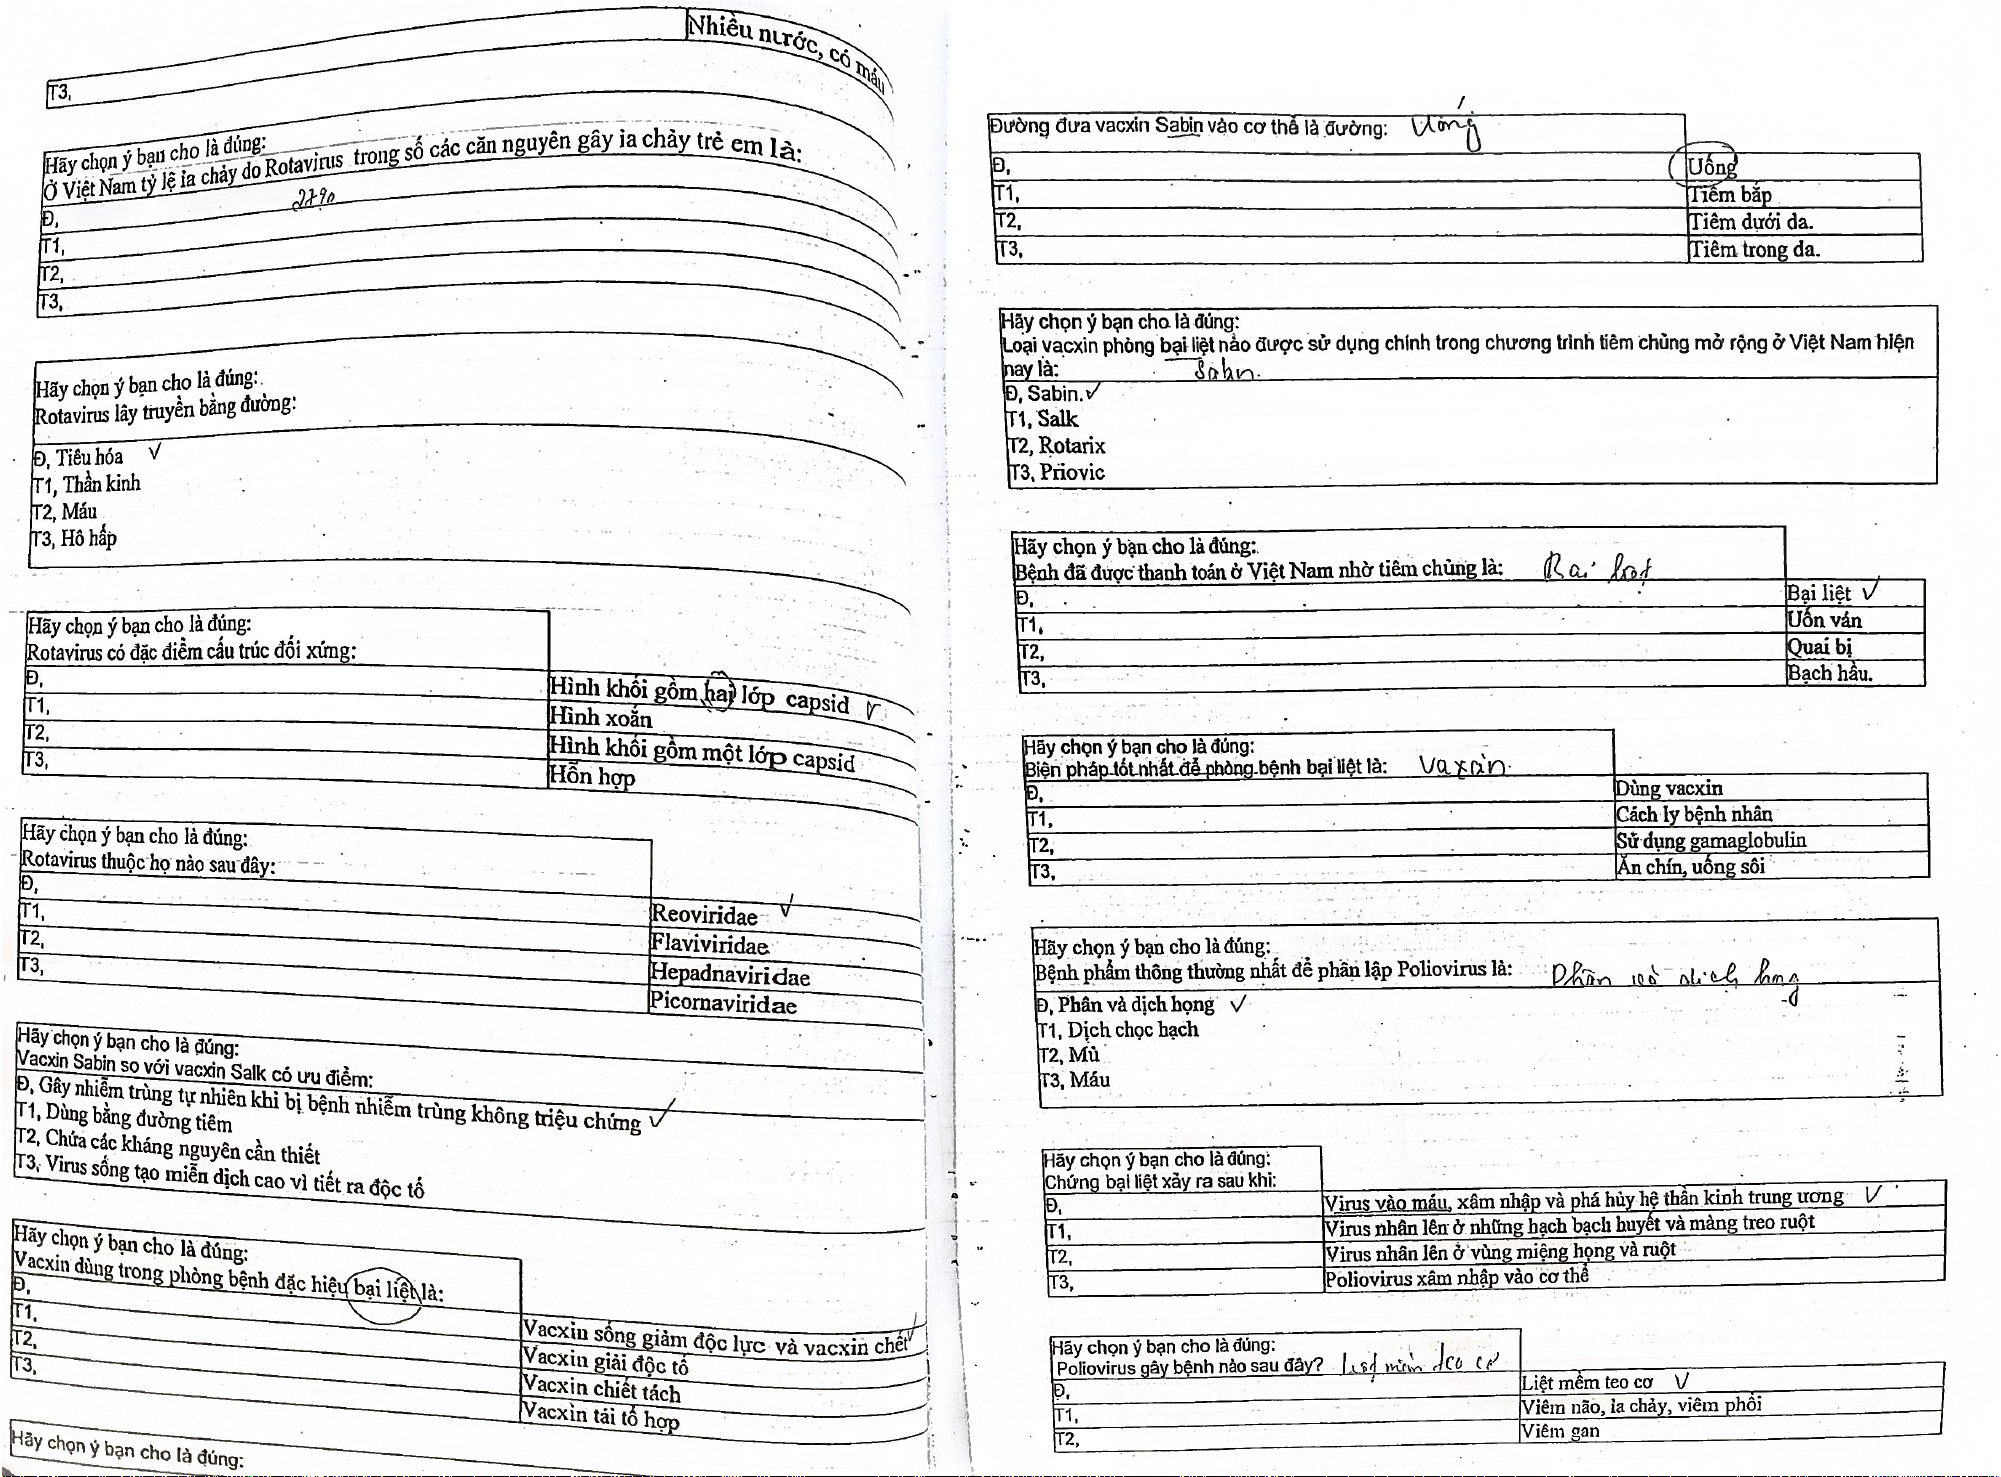 Nhiều nước, có máu
T3,
Hãy chọn ý bạn cho là đúng:
Ở Việt Nam tỷ lệ ỉa chảy do Rotavirus trong số các căn nguyên gây ỉa chảy trẻ em là:
Đ,
T1,
T2,
T3,
Hãy chọn ý bạn cho là đúng:
Rotavirus lây truyền bằng đường:
Đ, Tiêu hóa ✓
T1, Thần kinh
T2, Máu
T3, Hô hấp
Hãy chọn ý bạn cho là đúng:
Rotavirus có đặc điểm cấu trúc đối xứng:
Đ, Hình khối gồm hai lớp capsid ✓
T1, Hình xoắn
T2, Hình khối gồm một lớp capsid
T3, Hỗn hợp
Hãy chọn ý bạn cho là đúng:
Rotavirus thuộc họ nào sau đây:
Đ, Reoviridae ✓
T1, Flaviviridae
T2, Hepadnaviridae
T3, Picornaviridae
Hãy chọn ý bạn cho là đúng:
Vacxin Sabin so với vacxin Salk có ưu điểm:
Đ, Gây nhiễm trùng tự nhiên khi bị bệnh nhiễm trùng không triệu chứng ✓
T1, Dùng bằng đường tiêm
T2, Chứa các kháng nguyên cần thiết
T3, Virus sống tạo miễn dịch cao vì tiết ra độc tố
Hãy chọn ý bạn cho là đúng:
Vacxin dùng trong phòng bệnh đặc hiệu bại liệt là:
Đ, Vacxin sống giảm độc lực và vacxin chết ✓
T1, Vacxin giải độc tố
T2, Vacxin chiết tách
T3, Vacxin tái tổ hợp
Hãy chọn ý bạn cho là đúng:
Đường đưa vacxin Sabin vào cơ thể là đường: Uống
Đ, Uống
T1, Tiêm bắp
T2, Tiêm dưới da.
T3, Tiêm trong da.
Hãy chọn ý bạn cho là đúng:
Loại vacxin phòng bại liệt nào được sử dụng chính trong chương trình tiêm chủng mở rộng ở Việt Nam hiện
nay là: Sabin.
Đ, Sabin. ✓
T1, Salk
T2, Rotarix
T3, Priovic
Hãy chọn ý bạn cho là đúng:
Bệnh đã được thanh toán ở Việt Nam nhờ tiêm chủng là: Bại liệt
Đ, Bại liệt ✓
T1, Uốn ván
T2, Quai bị
T3, Bạch hầu.
Hãy chọn ý bạn cho là đúng:
Biện pháp tốt nhất để phòng bệnh bại liệt là: Vaxin.
Đ, Dùng vacxin
T1, Cách ly bệnh nhân
T2, Sử dụng gamaglobulin
T3, Ăn chín, uống sôi
Hãy chọn ý bạn cho là đúng:
Bệnh phẩm thông thường nhất để phân lập Poliovirus là: Phân và dịch họng
Đ, Phân và dịch họng ✓
T1, Dịch chọc hạch
T2, Mủ
T3, Máu
Hãy chọn ý bạn cho là đúng:
Chứng bại liệt xảy ra sau khi:
Đ, Virus vào máu, xâm nhập và phá hủy hệ thần kinh trung ương ✓
T1, Virus nhân lên ở những hạch bạch huyết và màng treo ruột
T2, Virus nhân lên ở vùng miệng họng và ruột
T3, Poliovirus xâm nhập vào cơ thể
Hãy chọn ý bạn cho là đúng:
Poliovirus gây bệnh nào sau đây? Liệt mềm teo cơ
Đ, Liệt mềm teo cơ ✓
T1, Viêm não, ỉa chảy, viêm phổi
T2, Viêm gan